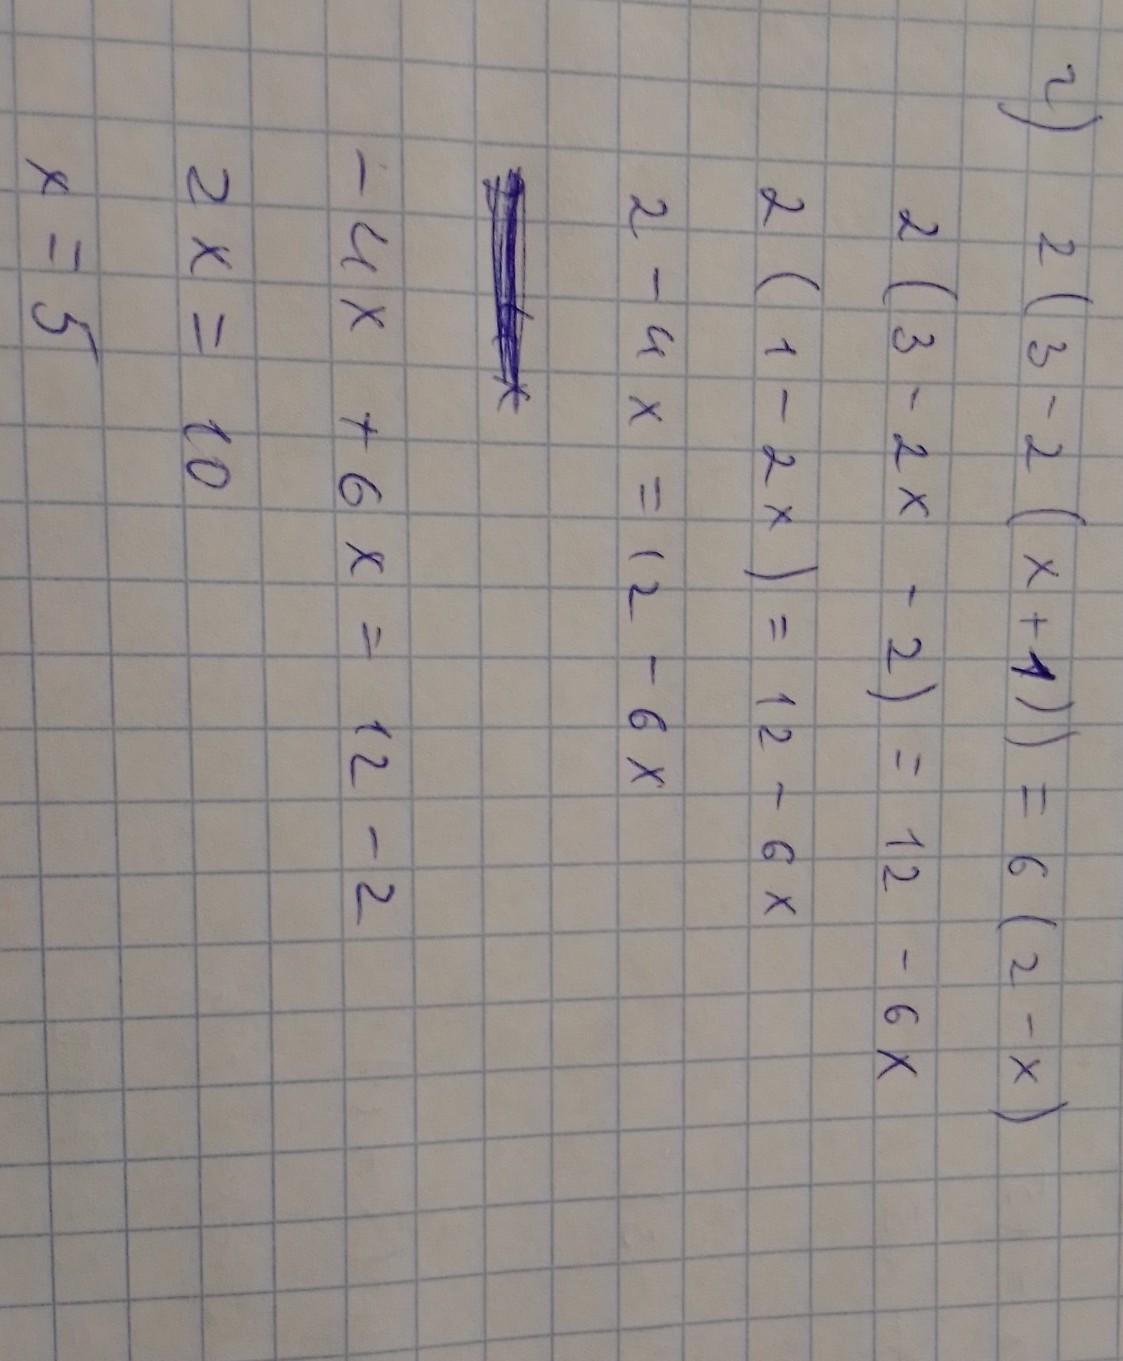 г) 2(3-2(x+1))=6(2-x)
2(3-2x-2)=12-6x
2(1-2x)=12-6x
2-4x=12-6x
-4x+6x=12-2
2x=10
x=5